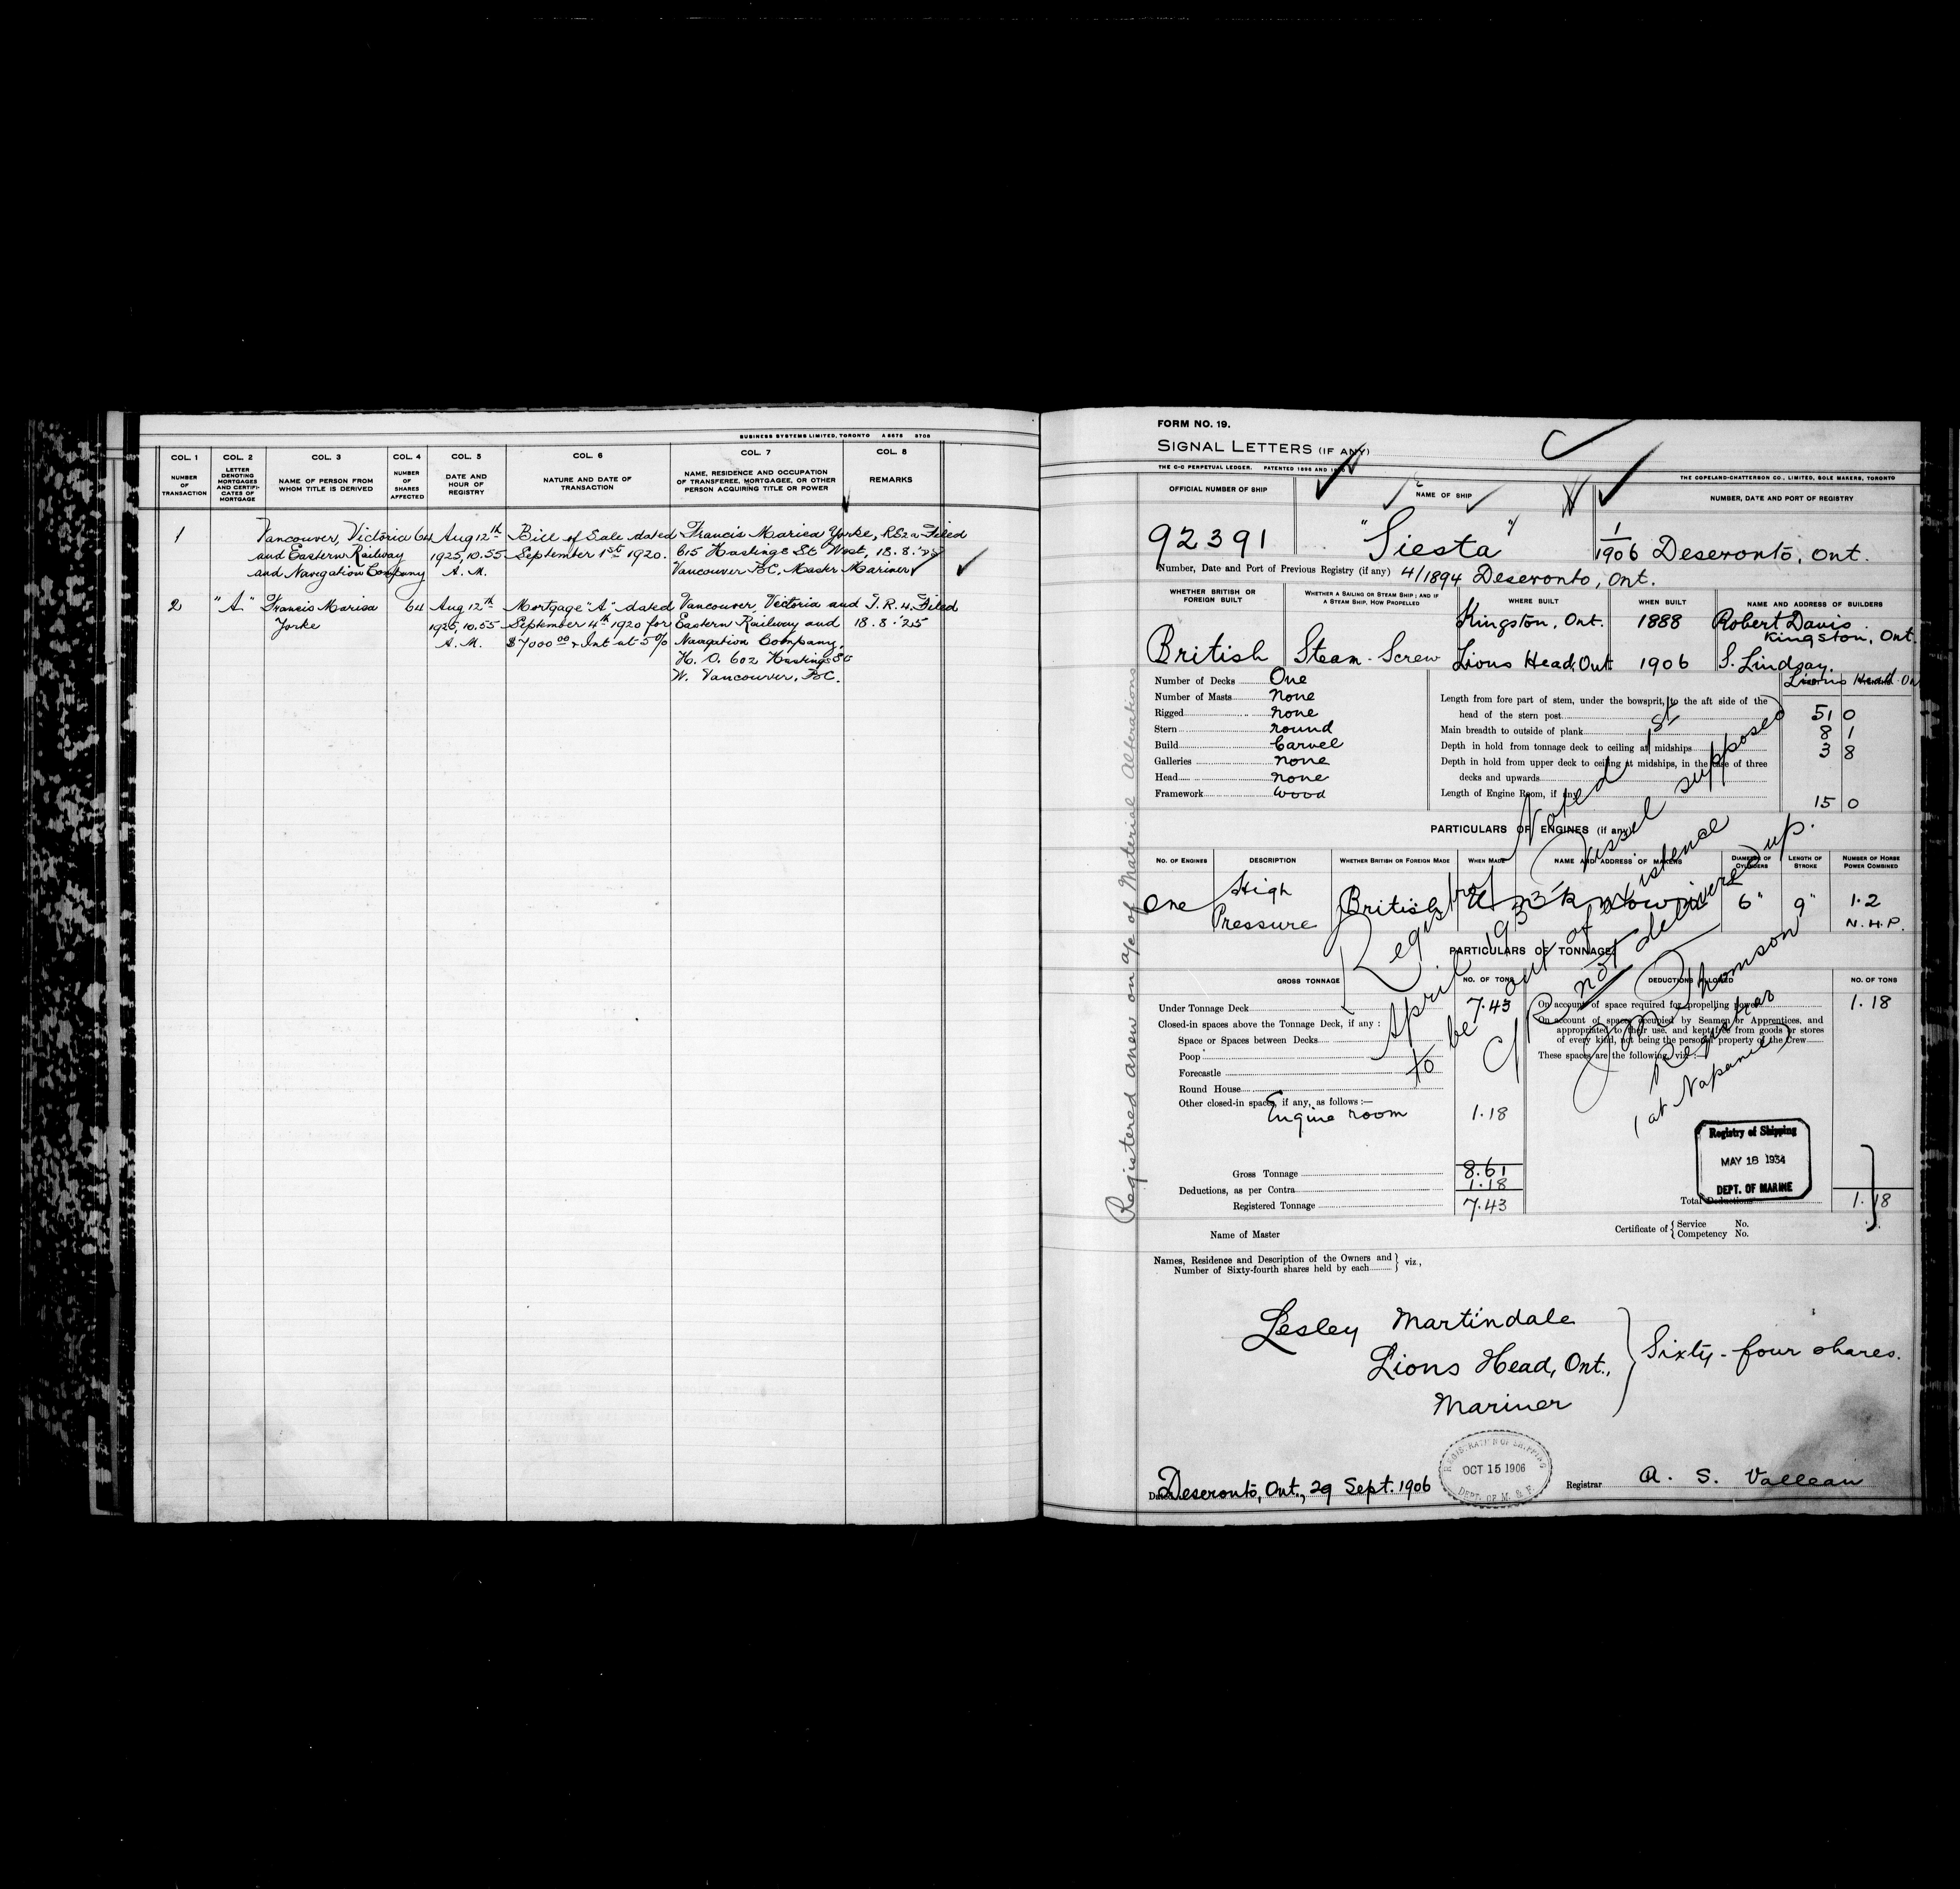 BUSINESS SYSTEMS LIMITED, TORONTO A 5676 9706
COL. 1 COL. 2 COL. 3 COL. 4 COL. 5 COL. 6 COL. 7 COL. 8
NUMBER OF TRANSACTION
LETTER DENOTING MORTGAGES AND CERTIFICATES OF MORTGAGE
NAME OF PERSON FROM WHOM TITLE IS DERIVED
NUMBER OF SHARES AFFECTED
DATE AND HOUR OF REGISTRY
NATURE AND DATE OF TRANSACTION
NAME, RESIDENCE AND OCCUPATION OF TRANSFEREE, MORTGAGEE, OR OTHER PERSON ACQUIRING TITLE OR POWER
REMARKS
1 Vancouver, Victoria 64 Aug 12th Bill of Sale dated Francis Marisa Yorke, RS2a Filed
and Eastern Railway 1925, 10.55 September 1st 1920. 615 Hastings St West, 18.8.'25
and Navigation Company A.M. Vancouver B.C. Master Mariner
2 "A" Francis Marisa 64 Aug 12th Mortgage "A" dated Vancouver, Victoria and T.R.4. Filed
Yorke 1925, 10.55 September 4th 1920 for Eastern Railway and 18.8.'25
A.M. $7000 00 & Int at 5% Navigation Company,
H.O. 602 Hastings St
W. Vancouver, B.C.
FORM NO. 19.
SIGNAL LETTERS (IF ANY)
THE C-C PERPETUAL LEDGER. PATENTED 1896 AND
THE COPELAND-CHATTERSON CO., LIMITED, SOLE MAKERS, TORONTO
OFFICIAL NUMBER OF SHIP NAME OF SHIP NUMBER, DATE AND PORT OF REGISTRY
92391 "Siesta" 1/1906 Deseronto, Ont.
Number, Date and Port of Previous Registry (if any) 4/1894 Deseronto, Ont.
WHETHER BRITISH OR FOREIGN BUILT
WHETHER A SAILING OR STEAM SHIP; AND IF A STEAM SHIP, HOW PROPELLED
WHERE BUILT
WHEN BUILT
NAME AND ADDRESS OF BUILDERS
Kingston, Ont. 1888 Robert Davis
Kingston, Ont.
British Steam-Screw Lions Head, Ont 1906 S. Lindsay.
Lions Head Ont
Number of Decks One
Number of Masts none
Rigged none
Stern round
Build Carvel
Galleries none
Head none
Framework wood
Length from fore part of stem, under the bowsprit, to the aft side of the
head of the stern post 51 0
Main breadth to outside of plank 8 1
Depth in hold from tonnage deck to ceiling at midships 3 8
Depth in hold from upper deck to ceiling at midships, in the case of three
decks and upwards
Length of Engine Room, if any 15 0
PARTICULARS OF ENGINES (if any)
NO. OF ENGINES DESCRIPTION WHETHER BRITISH OR FOREIGN MADE WHEN MADE NAME AND ADDRESS OF MAKERS DIAMETER OF CYLINDERS LENGTH OF STROKE NUMBER OF HORSE POWER COMBINED
One High Pressure British Unknown 6" 9" 1.2
N.H.P.
PARTICULARS OF TONNAGE
GROSS TONNAGE NO. OF TONS DEDUCTIONS ALLOWED NO. OF TONS
Under Tonnage Deck 7.43
Closed-in spaces above the Tonnage Deck, if any :
Space or Spaces between Decks
Poop
Forecastle
Round House
Other closed-in spaces, if any, as follows :—
Engine room 1.18
Gross Tonnage 8.61
Deductions, as per Contra 1.18
Registered Tonnage 7.43
On account of space required for propelling power 1.18
On account of spaces occupied by Seamen or Apprentices, and
appropriated to their use, and kept free from goods or stores
of every kind, not being the personal property of the Crew
These spaces are the following, viz :—
Total Deductions 1.18
Vessel supposed
to be out of existence
C/R not delivered up.
Thomson
Registrar
(at Napanee)
Registry of Shipping
MAY 18 1934
DEPT. OF MARINE
Registered anew on a/c of Material Alterations
Name of Master
Certificate of { Service No.
Competency No.
Names, Residence and Description of the Owners and } viz,
Number of Sixty-fourth shares held by each
Lesley Martindale
Lions Head, Ont.,
Mariner
Sixty-four shares.
Dated Deseronto, Ont., 29 Sept. 1906
REGISTRATION OF SHIPPING
OCT 15 1906
DEPT. OF M. & F.
Registrar A. S. Valleau